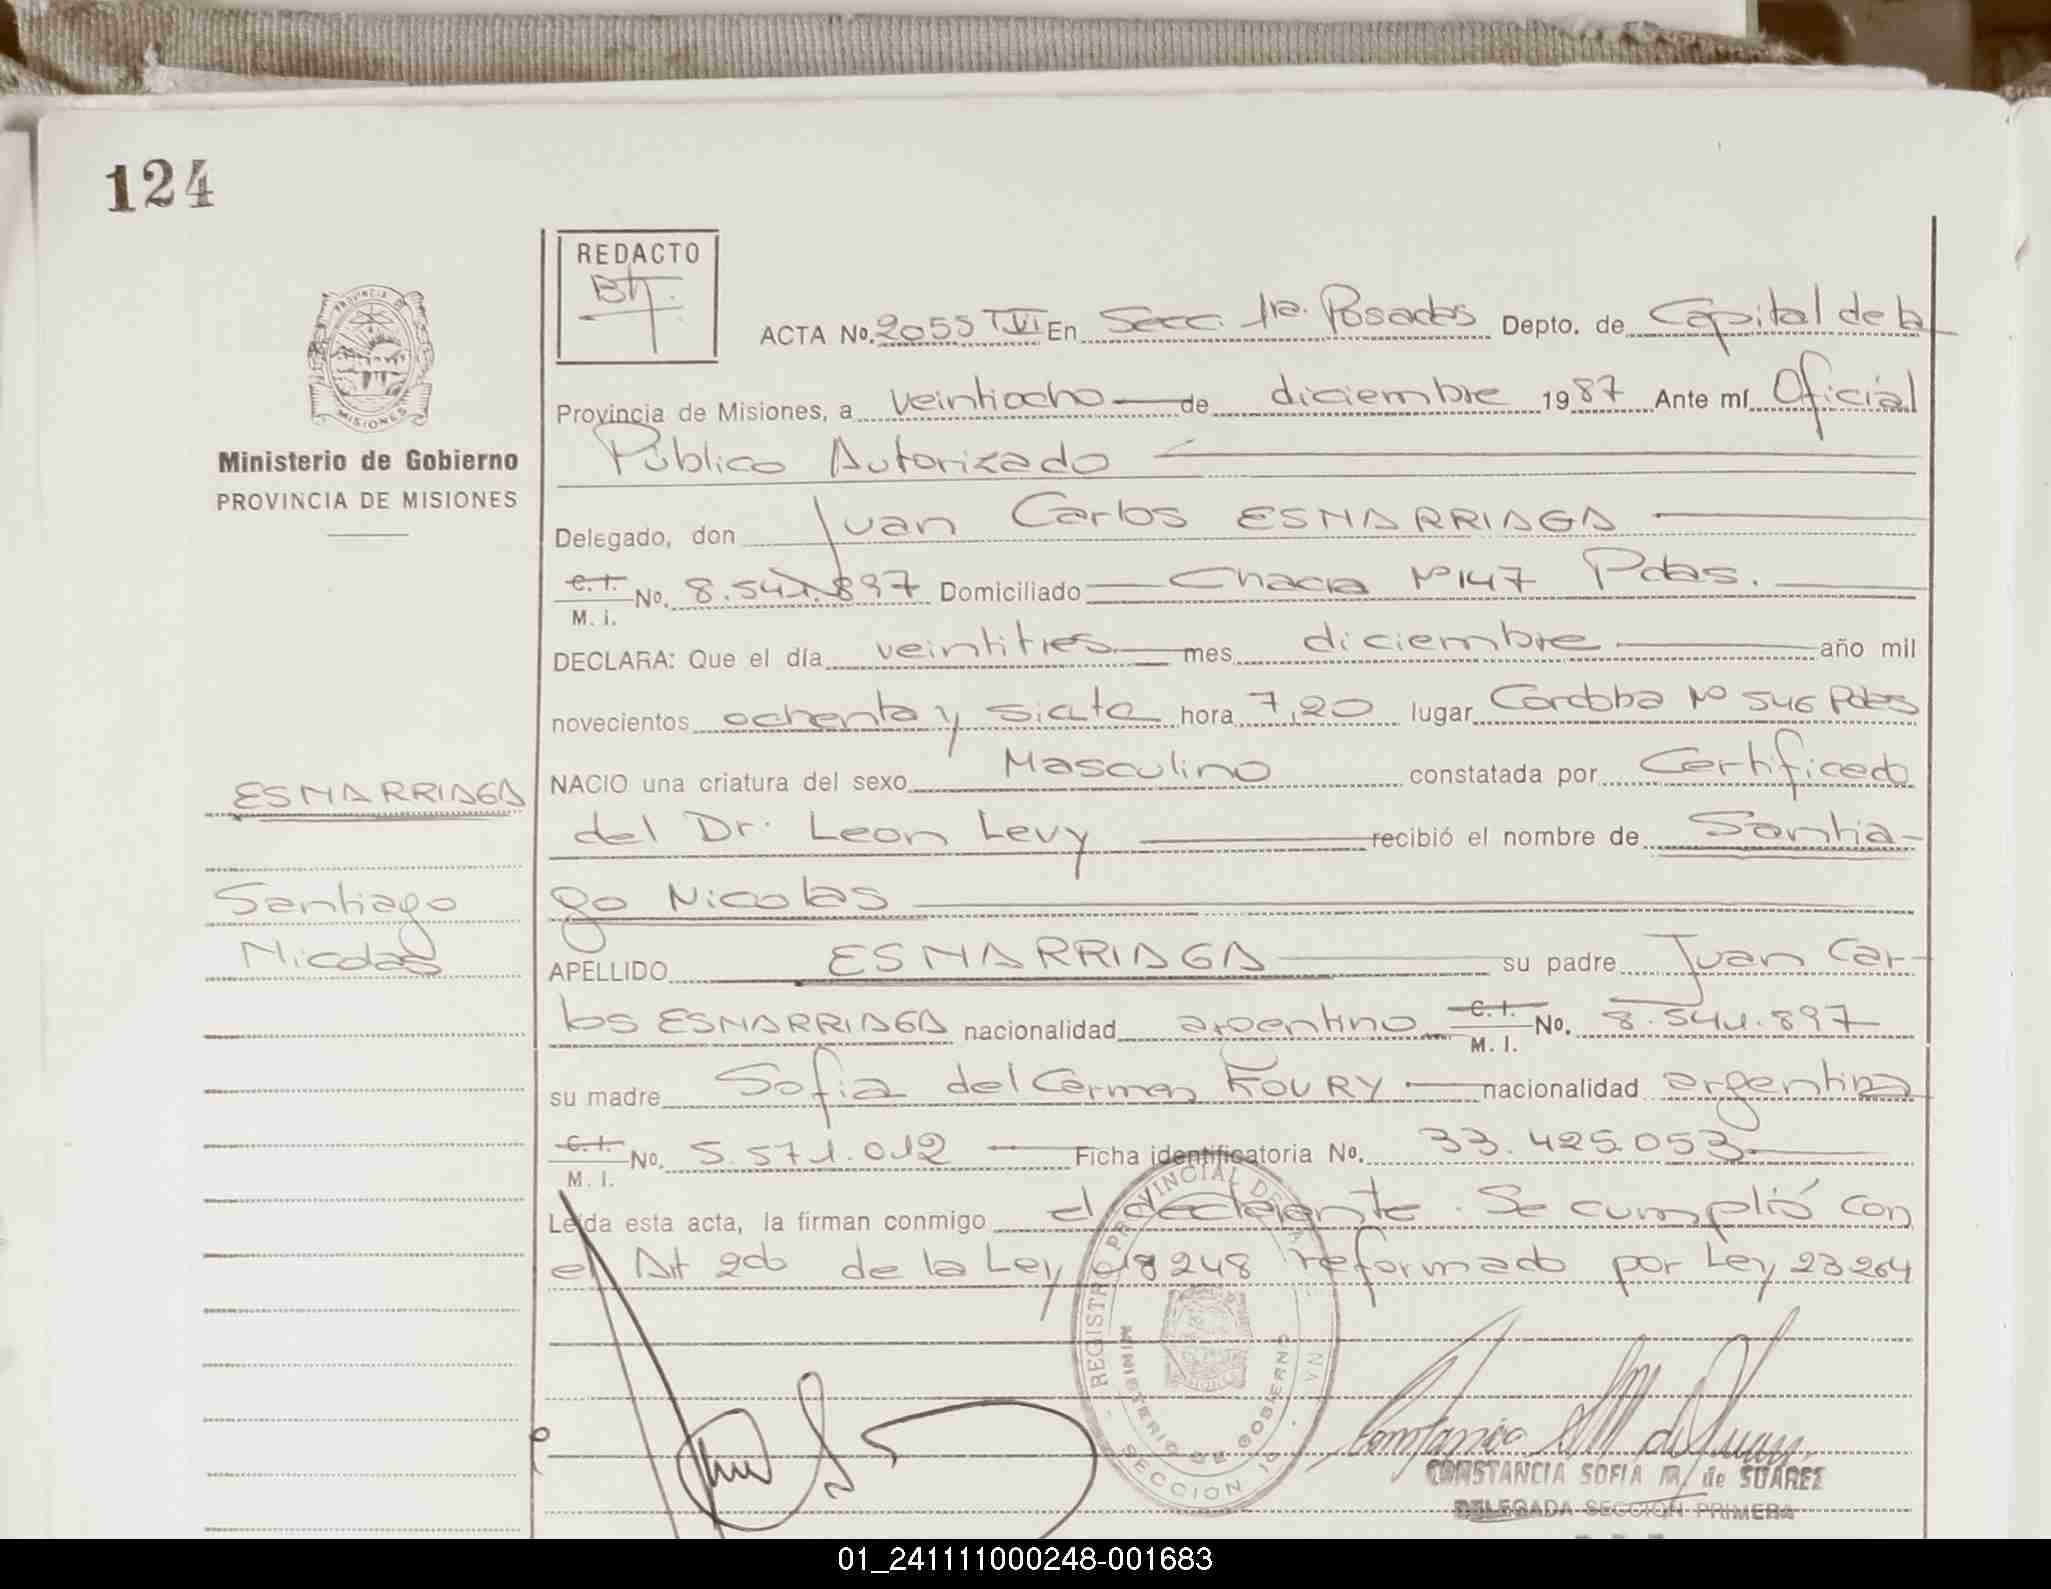 124
REDACTO
ACTA No. 2055 T VI En Secc. 1ra. Posadas Depto. de Capital de la
Provincia de Misiones, a veintiocho de diciembre 1987 Ante mí Oficial
Público Autorizado
Delegado, don Juan Carlos ESNARRIAGA
C. I. No. 8.541.897 Domiciliado Chacra Nº 147 Pdas.
M. I.
DECLARA: Que el día veintitres mes diciembre año mil
novecientos ochenta y siete hora 7,20 lugar Cordoba Nº 546 Pdas
NACIO una criatura del sexo Masculino constatada por Certificado
del Dr. Leon Levy recibió el nombre de Santia-
go Nicolas
APELLIDO ESNARRIAGA su padre Juan Car-
los ESNARRIAGA nacionalidad argentino C. I. No. 8.541.897
M. I.
su madre Sofia del Carmen KOURY nacionalidad argentina
C. I. No. 5.571.012 Ficha identificatoria No. 33.425.053
M. I.
Leída esta acta, la firman conmigo el declarante. Se cumplió con
el Art 2do de la Ley 18248 reformado por Ley 23264
PROVINCIA DE
MISIONES
Ministerio de Gobierno
PROVINCIA DE MISIONES
ESNARRIAGA
Santiago
Nicolas
REGISTRO PROVINCIAL DE LA
MINISTERIO DE GOBIERNO
SECCION 1a
CONSTANCIA SOFIA M. de SUAREZ
DELEGADA SECCION PRIMERA
01_241111000248-001683